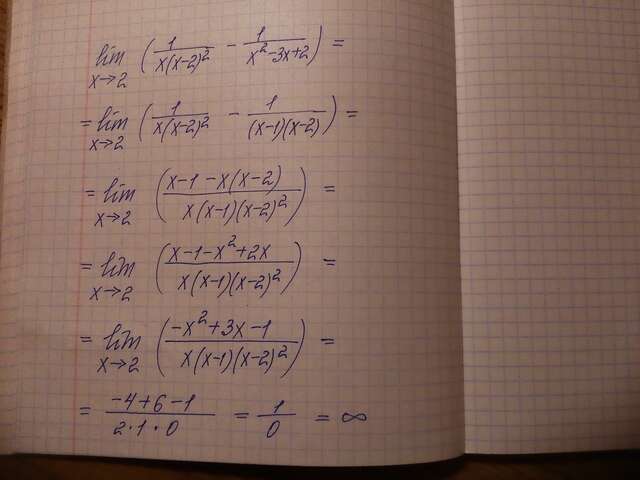 lim x→2 (1/(x(x-2)²) - 1/(x²-3x+2)) =
= lim x→2 (1/(x(x-2)²) - 1/((x-1)(x-2))) =
= lim x→2 ((x-1-x(x-2))/(x(x-1)(x-2)²)) =
= lim x→2 ((x-1-x²+2x)/(x(x-1)(x-2)²)) =
= lim x→2 ((-x²+3x-1)/(x(x-1)(x-2)²)) =
= (-4+6-1)/(2·1·0) = 1/0 = ∞